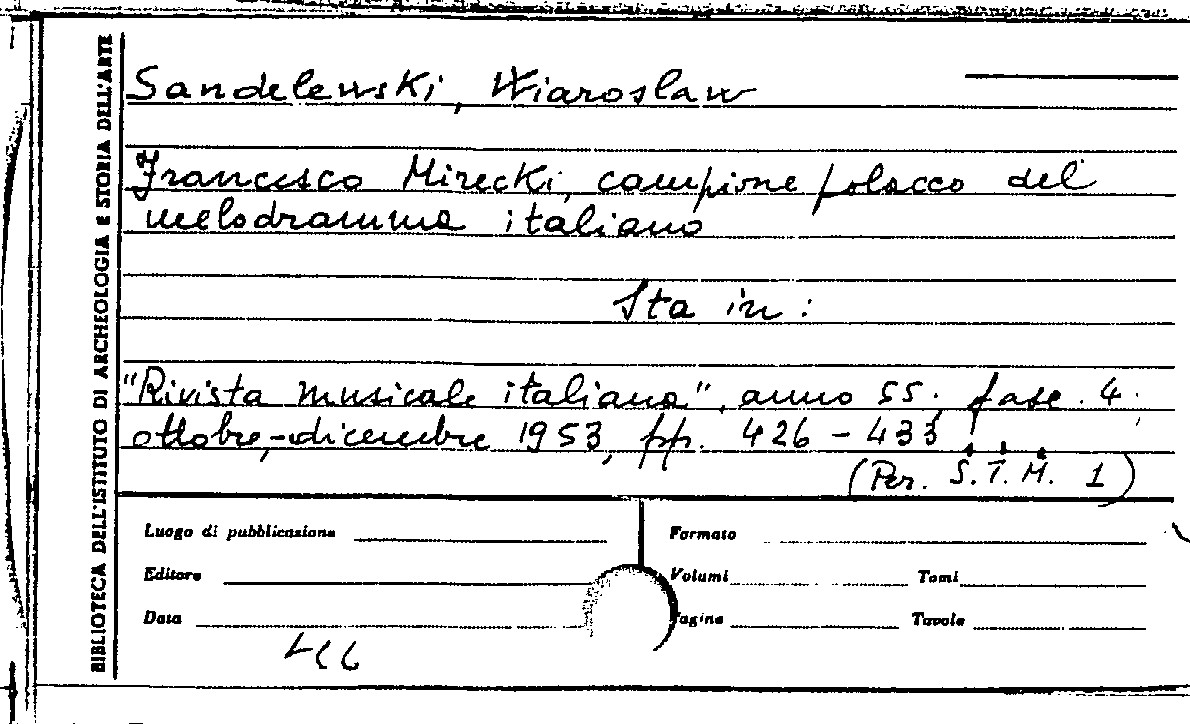 BIBLIOTECA DELL'ISTITUTO DI ARCHEOLOGIA E STORIA DELL'ARTE
Sandelewski, Wiaroslaw
Francesco Mirecki, campione polacco del
melodramma italiano
Sta in:
"Rivista musicale italiana", anno 55, fasc. 4
ottobre-dicembre 1953, pp. 426-433
(Per. S.T.M. 1)
Luogo di pubblicazione Formato
Editore Volumi Tomi
Data Pagine Tavole